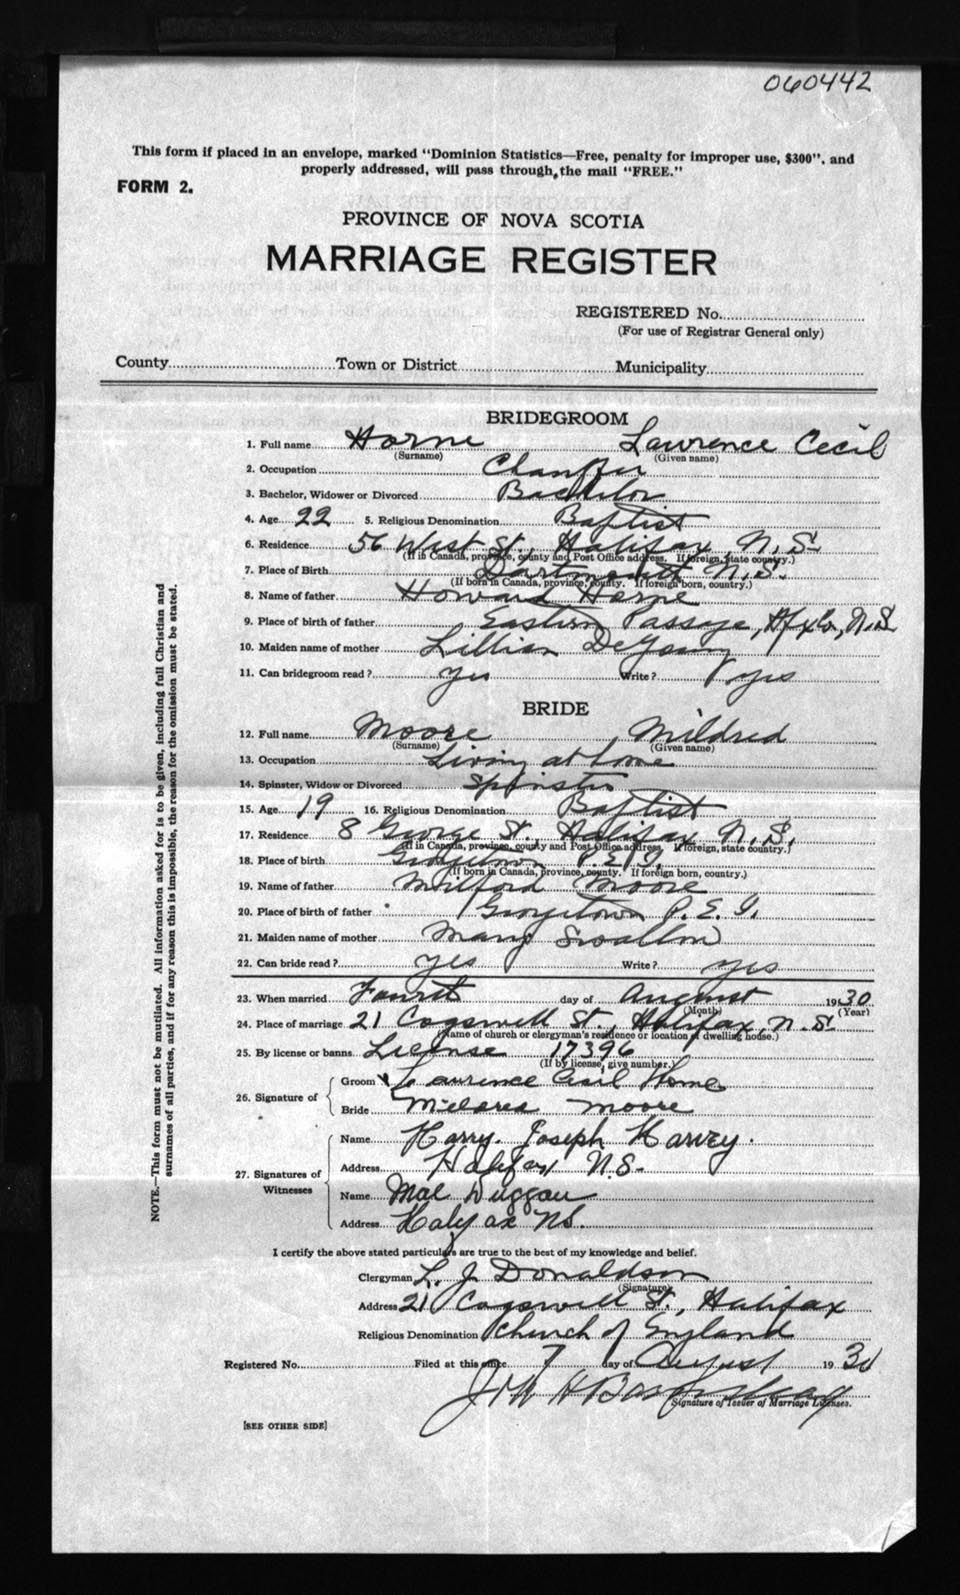 060442
This form if placed in an envelope, marked "Dominion Statistics—Free, penalty for improper use, $300", and
properly addressed, will pass through the mail "FREE."
FORM 2.
PROVINCE OF NOVA SCOTIA
MARRIAGE REGISTER
REGISTERED No.
(For use of Registrar General only)
County Town or District Municipality
BRIDEGROOM
1. Full name Horne Lawrence Cecil
(Surname) (Given name)
2. Occupation Chauffer
3. Bachelor, Widower or Divorced Bachelor
4. Age 22 5. Religious Denomination Baptist
6. Residence 56 West St., Halifax, N.S.
(If in Canada, province, county and Post Office address. If foreign, state country.)
7. Place of Birth Dartmouth N.S.
(If born in Canada, province, county. If foreign born, country.)
8. Name of father Howard Horne
9. Place of birth of father Eastern Passage, Hfx Co., N.S.
10. Maiden name of mother Lillian DeYoung
11. Can bridegroom read? yes Write? yes
BRIDE
12. Full name Moore, Mildred
(Surname) (Given name)
13. Occupation Living at home
14. Spinster, Widow or Divorced Spinster
15. Age 19 16. Religious Denomination Baptist
17. Residence 8 George St., Halifax N.S.
(If in Canada, province, county and Post Office address. If foreign, state country.)
18. Place of birth Georgetown P.E.I.
(If born in Canada, province, county. If foreign born, country.)
19. Name of father Milford Moore
20. Place of birth of father Georgetown P.E.I.
21. Maiden name of mother Mary Swallow
22. Can bride read? yes Write? yes
23. When married Fourth day of August 1930
(Month) (Year)
24. Place of marriage 21 Cogswell St., Halifax, N.S.
(Name of church or clergyman's residence or location of dwelling house.)
25. By license or banns License 17396
(If by license, give number.)
26. Signature of
Groom Lawrence Cecil Horne
Bride Mildred Moore
27. Signatures of Witnesses
Name Harry Joseph Harvey.
Address Halifax N.S.
Name Mae Duggan
Address Halifax NS.
I certify the above stated particulars are true to the best of my knowledge and belief.
Clergyman L. J. Donaldson
(Signature)
Address 21 Cogswell St., Halifax
Religious Denomination Church of England
Registered No. Filed at this office 7 day of August 1930
Signature of Issuer of Marriage Licenses.
[SEE OTHER SIDE]
NOTE.—This form must not be mutilated. All information asked for is to be given, including full Christian and
surnames of all parties, and if for any reason this is impossible, the reason for the omission must be stated.